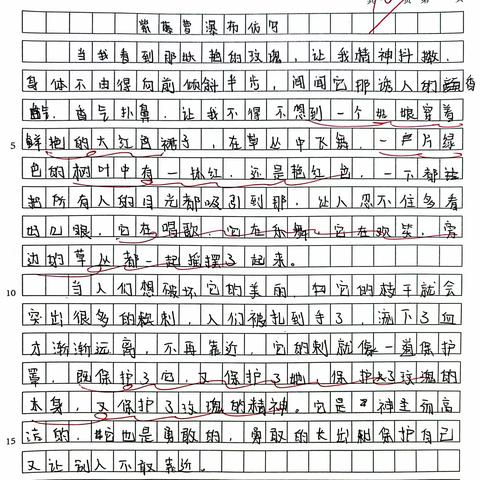 紫藤萝瀑布仿写
当我看到那妖艳的玫瑰，让我精神抖擞，
身体不由得向前倾斜半步，闻闻它那诱人的香
香气扑鼻，让我不得不想到一个姑娘穿着
5 鲜艳的大红色裙子，在草丛中飞舞，一片绿
色的树叶中有一抹红，还是艳红色，一下都
把所有人的目光都吸引到那，让人忍不住多看
好几眼，它在唱歌，它在跳舞，它在欢笑，旁
边的草丛都一起摇摆了起来。
10 当人们想破坏它的美丽，和它的枝干就会
突出很多的刺，人们被扎到手了，流下了血
才渐渐远离，不再靠近，它的刺就像一道保护
罩，既保护了它，又保护了她，保护了玫瑰的
本身，又保护了玫瑰的精神。它是神圣而高
15 洁的，它也是勇敢的，勇敢的长出刺保护自己
又让别人不敢靠近。